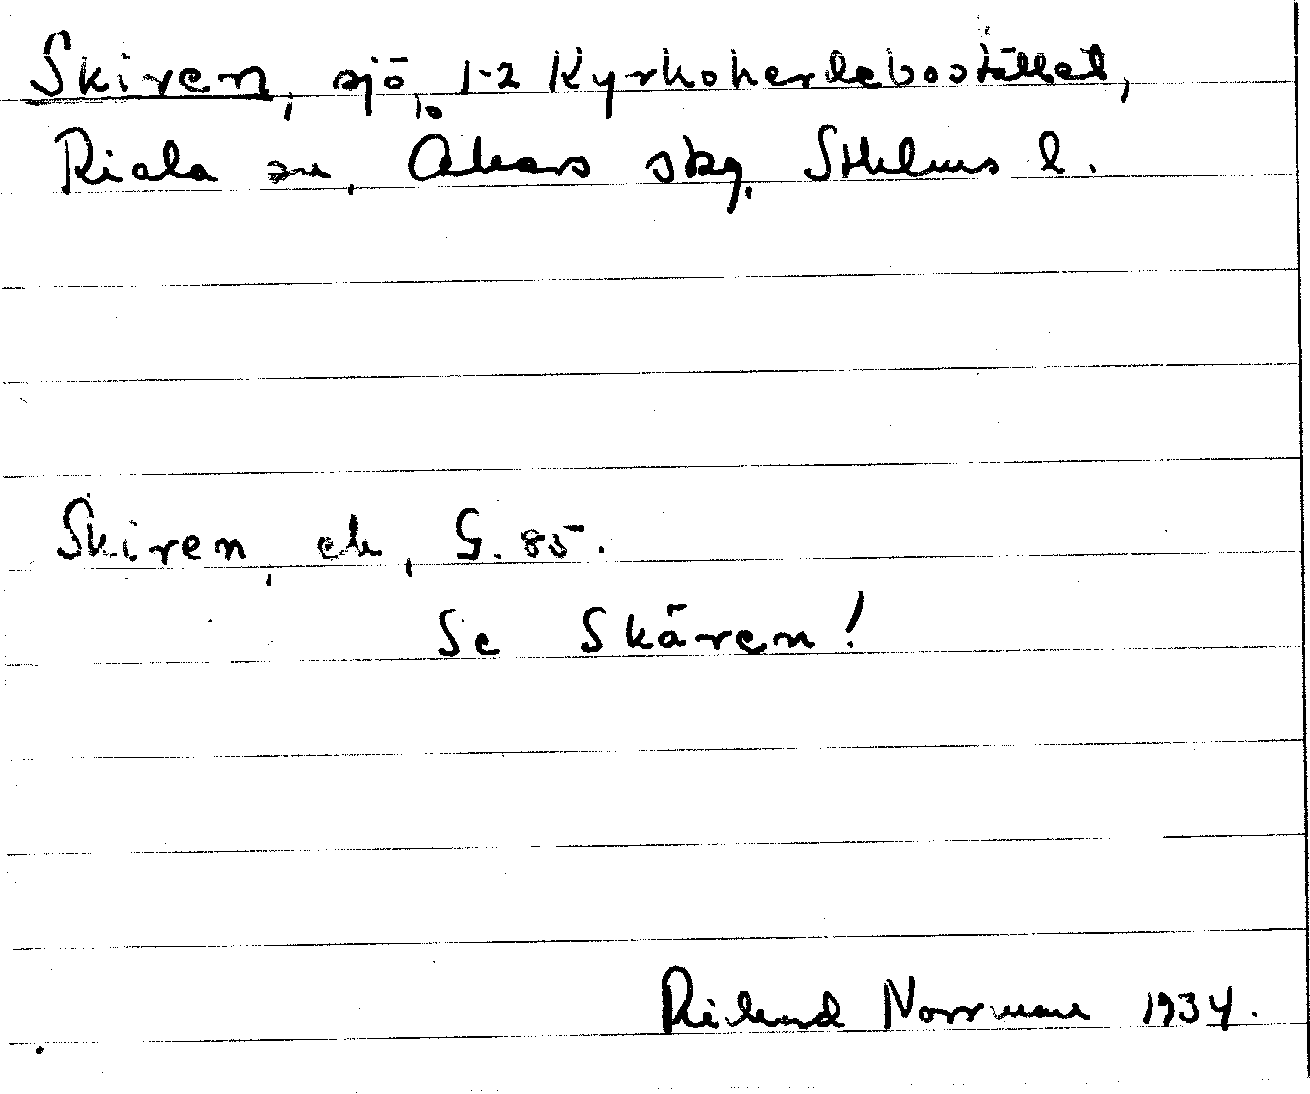 Skiren, sjö, 1-2 Kyrkoherdebostället,
Riala sn, Åkers skg, Sthlms l.
Skiren, ek, G. 85.
Se Skären!
Rikard Norrman 1934.